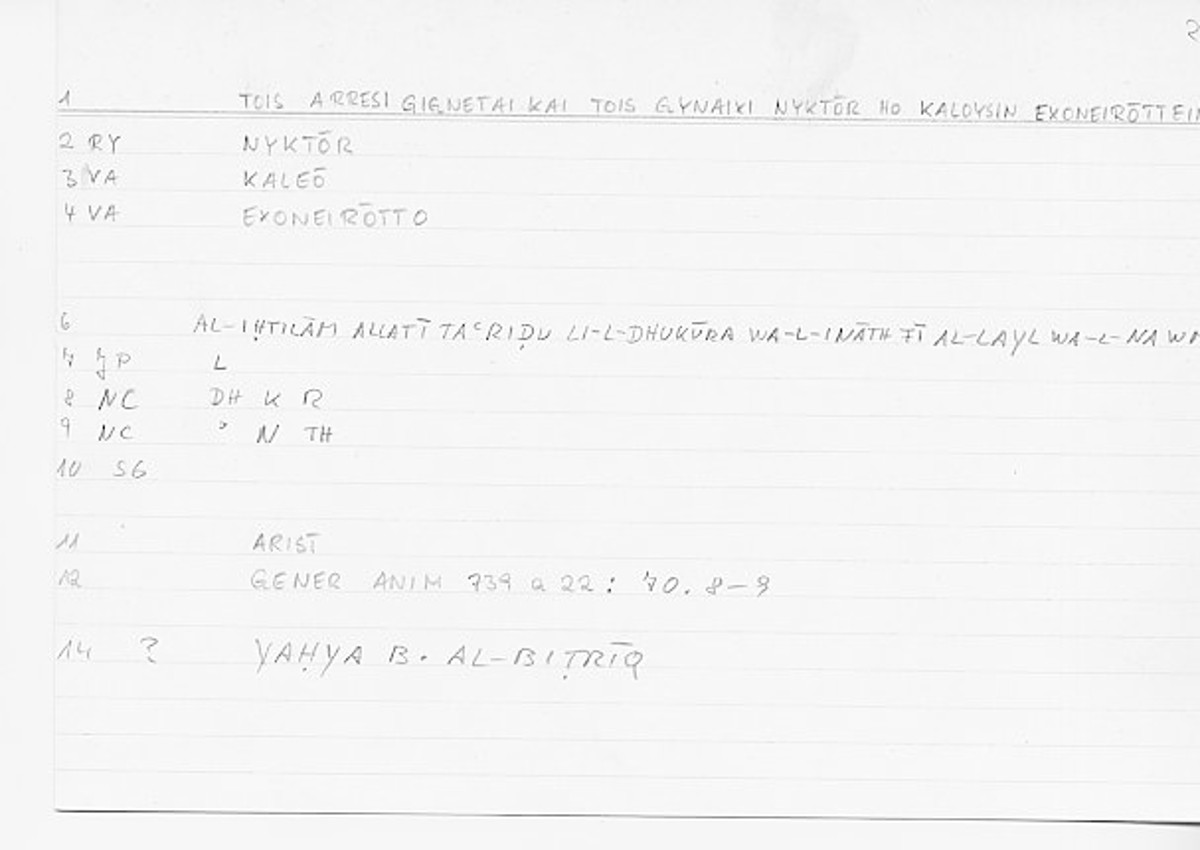 2
1 TOIS ARRESI GIGNETAI KAI TOIS GYNAIXI NYKTŌR HO KALOYSIN EXONEIRŌTTEIN
2 RY NYKTŌR
3 VA KALEŌ
4 VA EXONEIRŌTTO
6 AL-IḤTILĀM ALLATĪ TAʿRIḌU LI-L-DHUKŪRA WA-L-INĀTH FĪ AL-LAYL WA-L-NAWM
7 JP L
8 NC DH K R
9 NC ʾ N TH
10 SG
11 ARIST
12 GENER ANIM 739 a 22: 70.8-9
14 ? YAḤYA B. AL-BIṬRĪQ